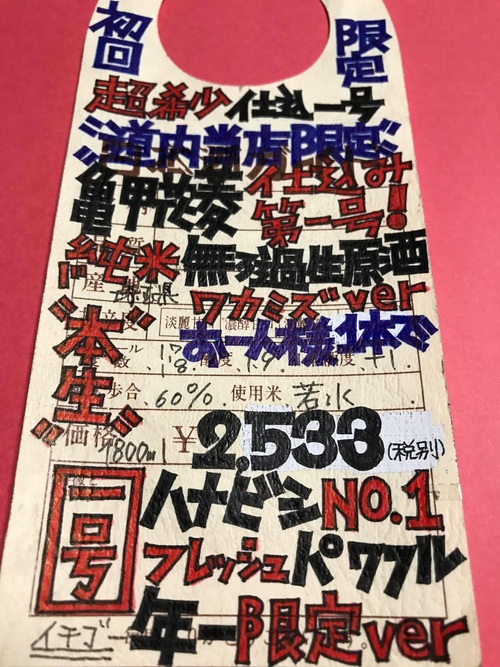 初回 限定
超希少 仕込一号
道内当店限定
亀甲花菱 仕込み第一号!
純米 無濾過生原酒
ワカミズver
"本生" お一人様1本で
淡麗
歩合 60% 使用米 若水
価格 1800ml ¥2,533(税別)
一号 ハナビシNO.1
フレッシュパワフル
年一限定ver
イチゴ